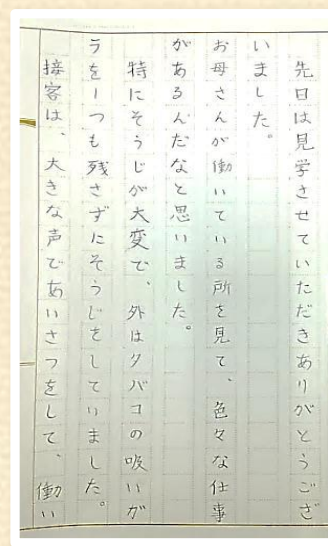 先日は見学させていただきありがとうござ
いました。
お母さんが働いている所を見て、色々な仕事
があるんだなと思いました。
特にそうじが大変で、外はタバコの吸いが
ラを1つも残さずにそうじをしていました。
接客は、大きな声であいさつをして、働い